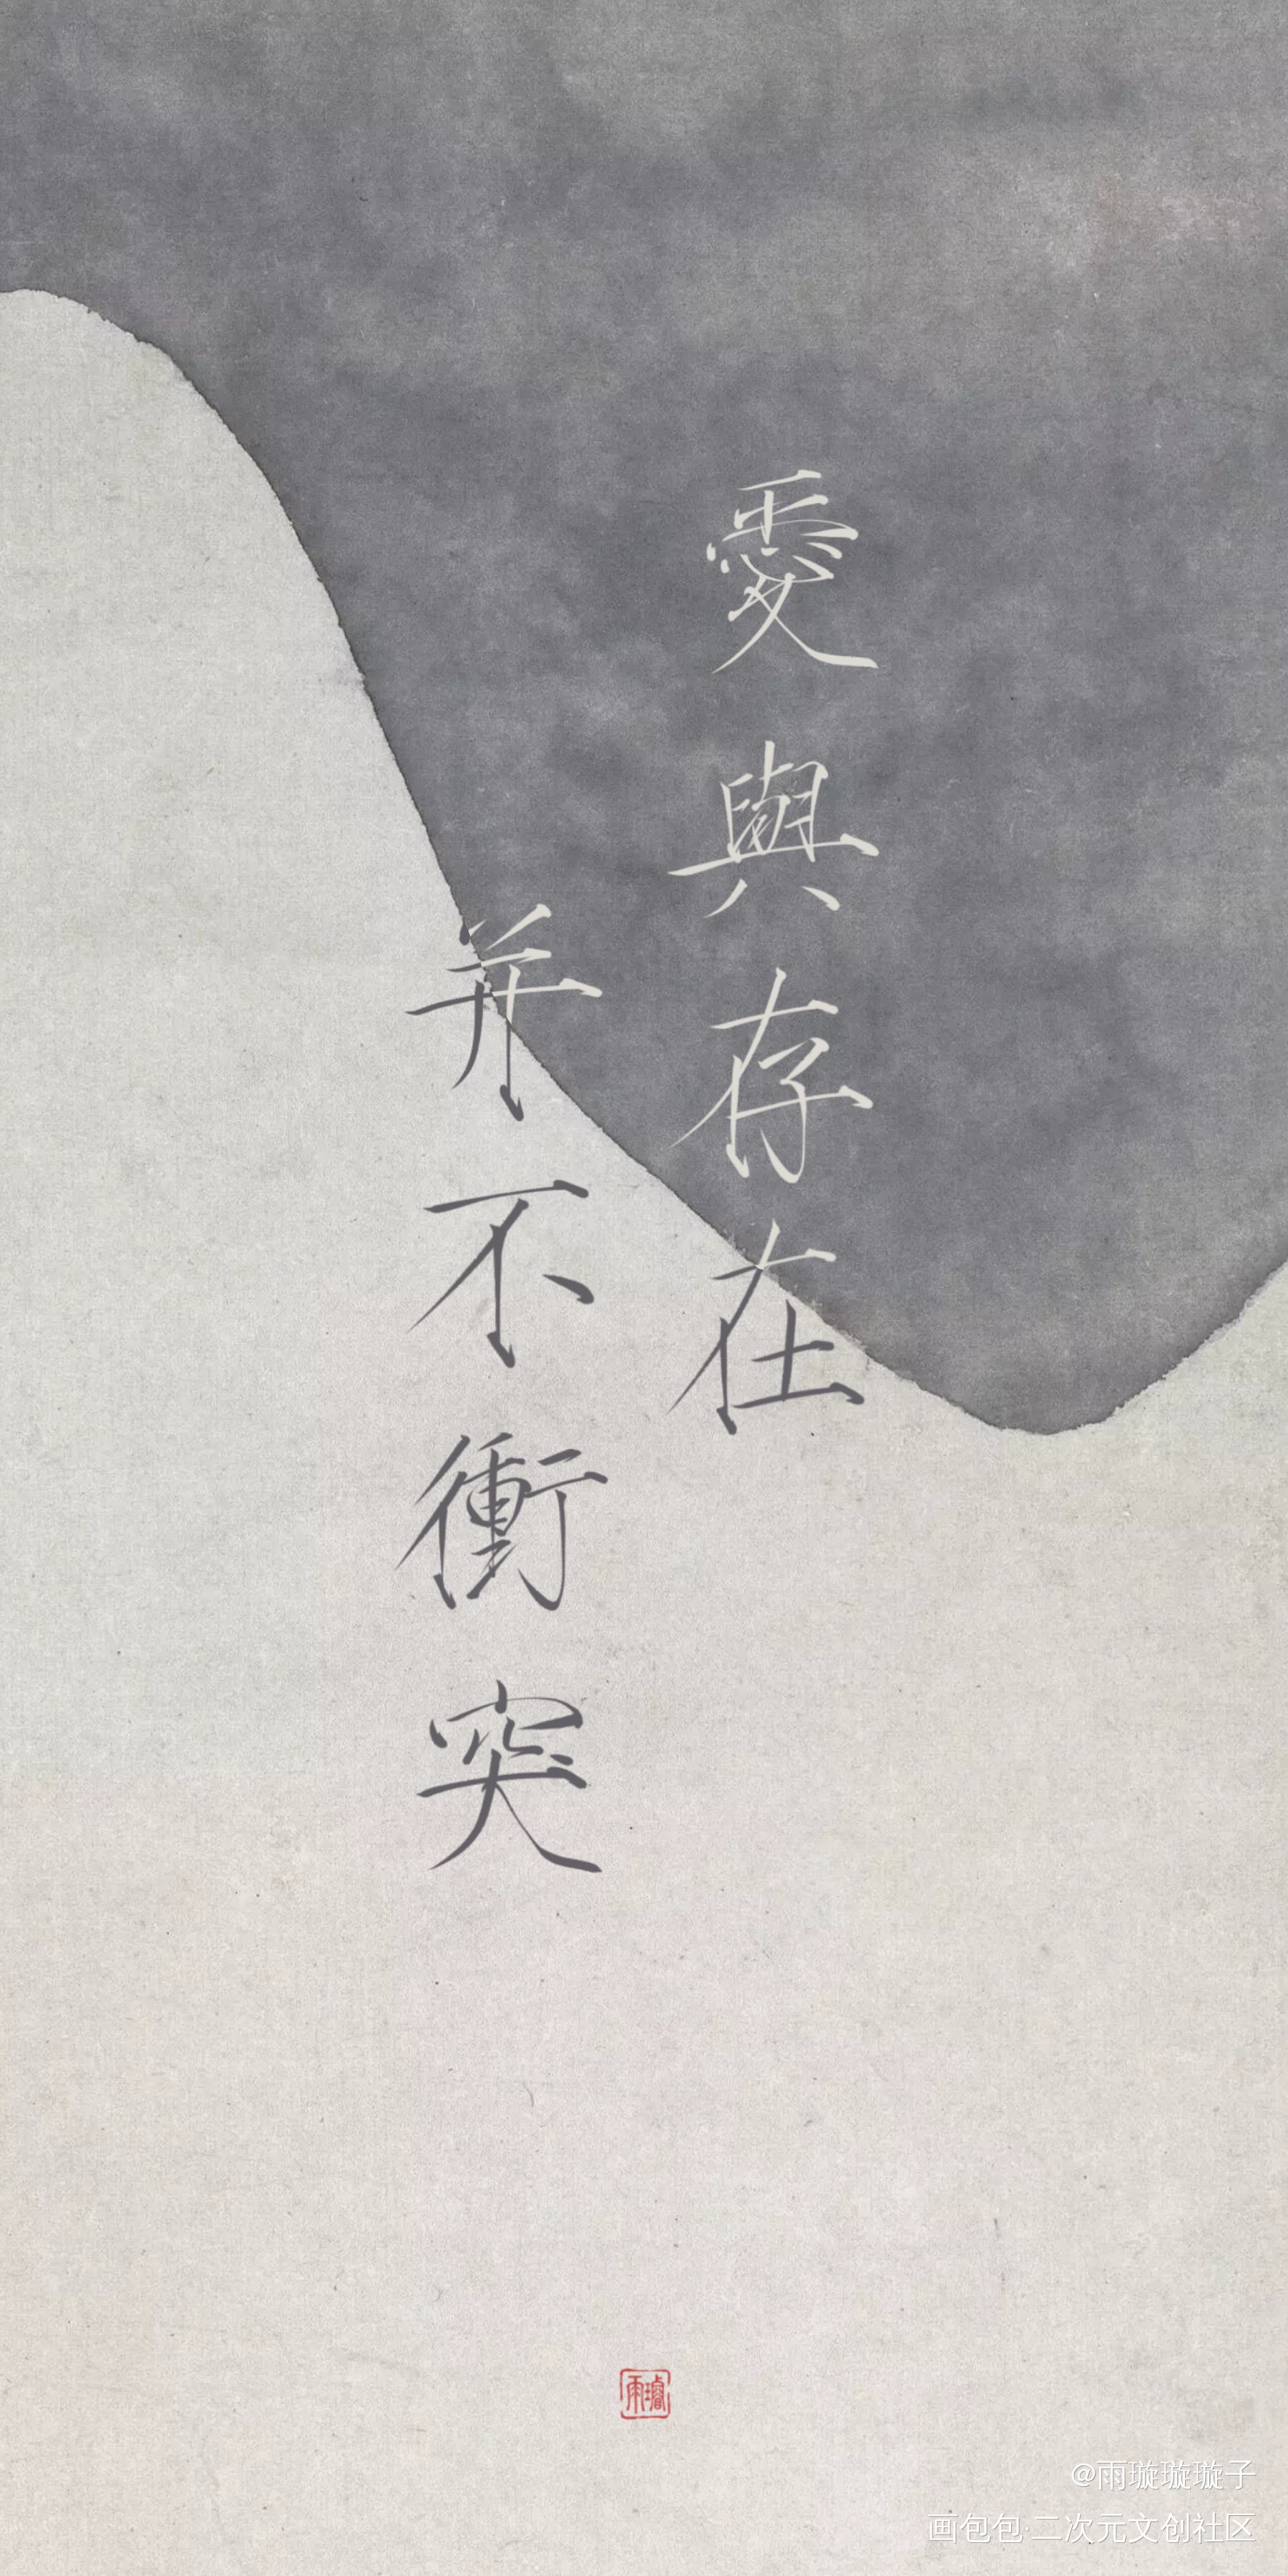 愛與存在
并不衝突
雨璿
@雨璇璇璇子
画包包·二次元文创社区